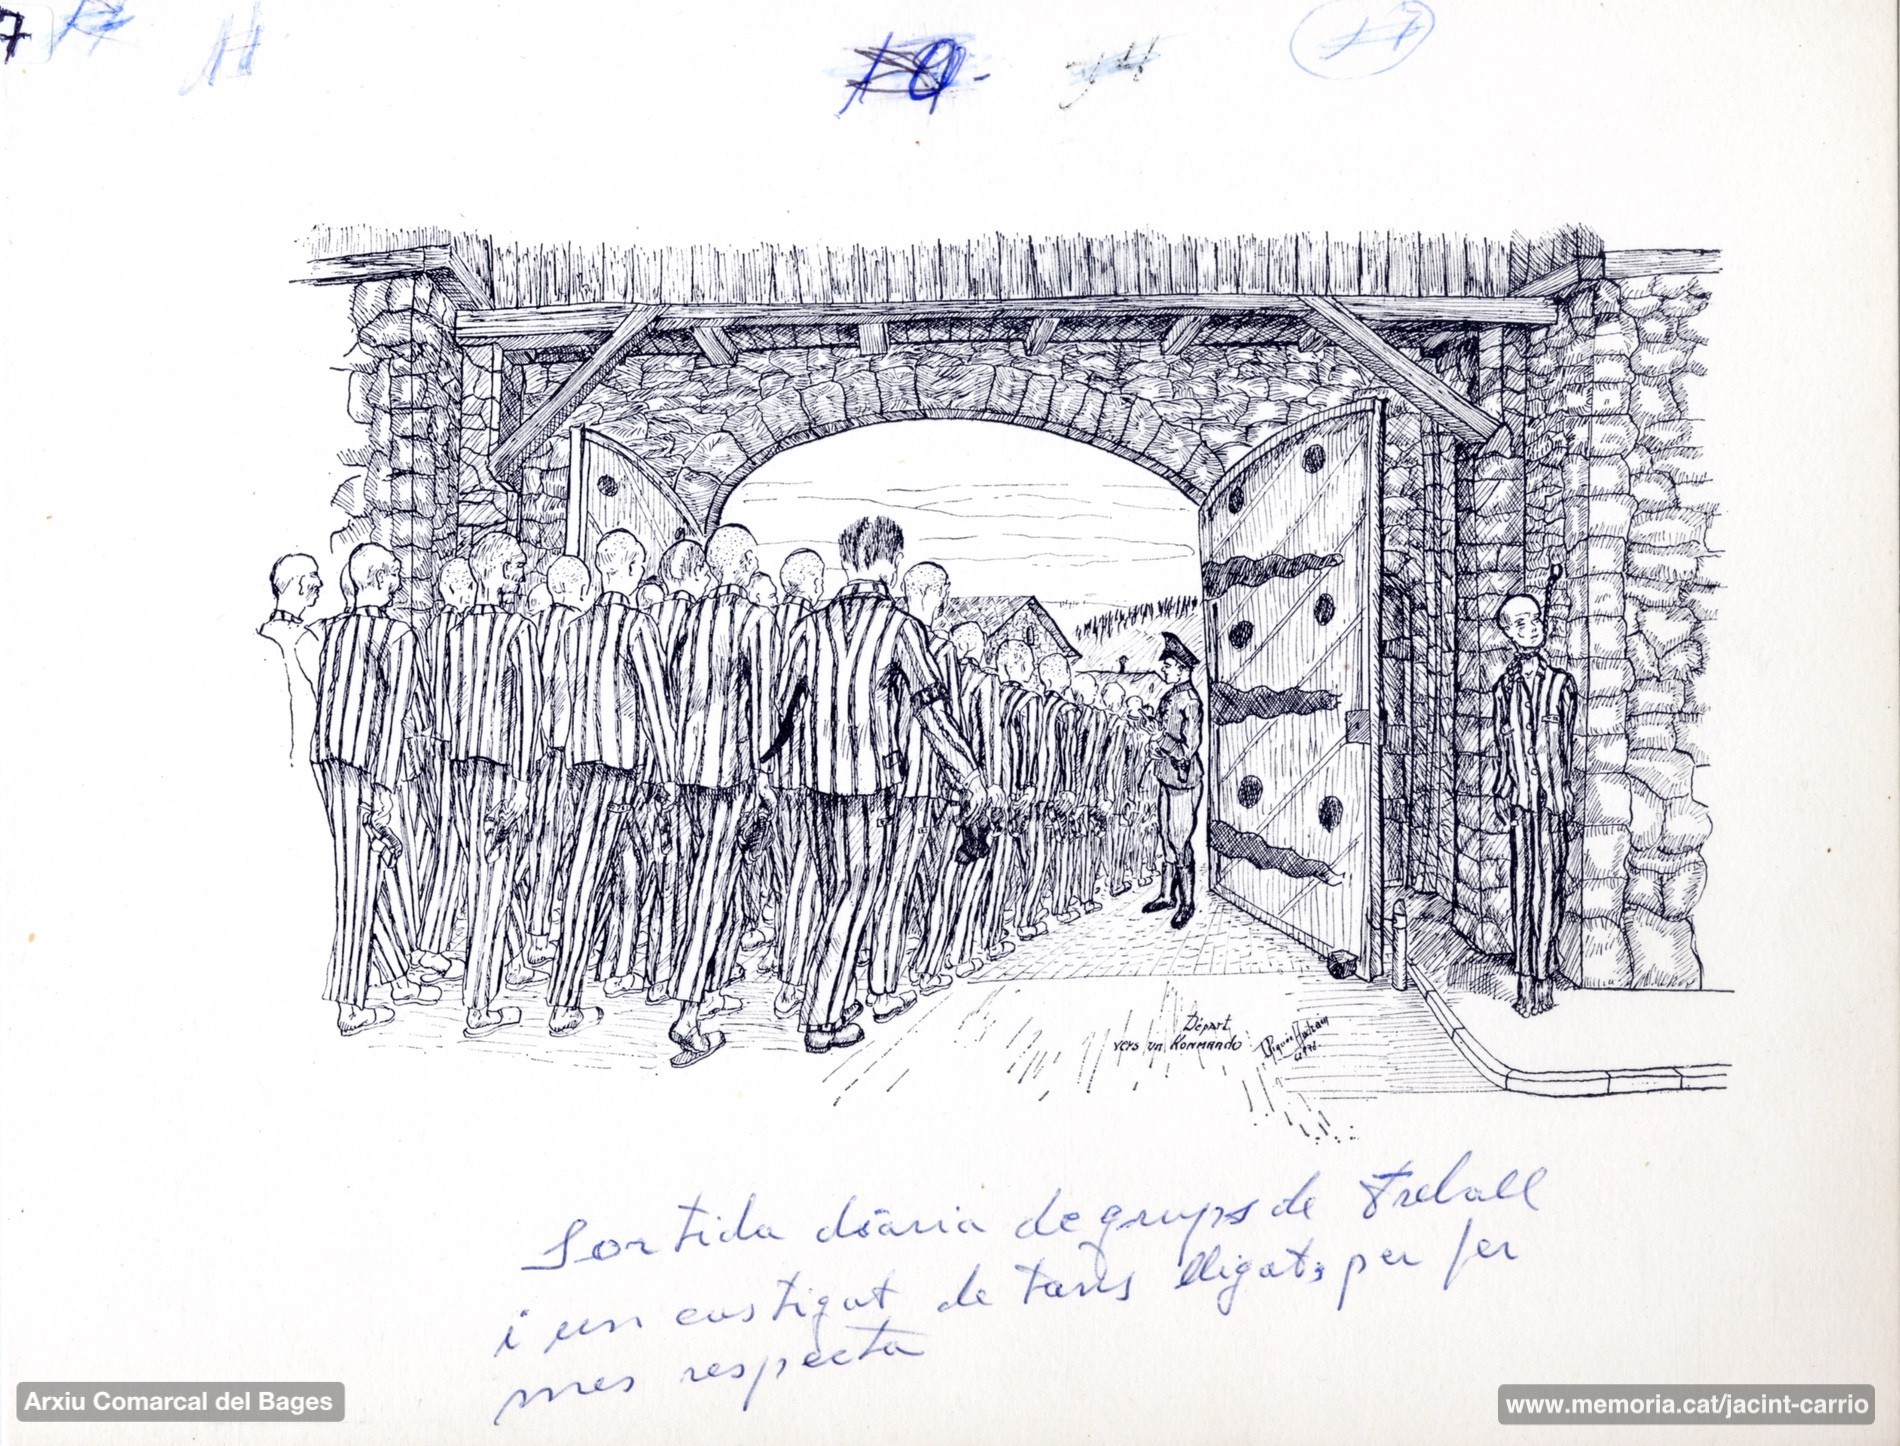 7 17 11
19- 14 17
Départ
vers un Kommando
Sortida diaria de grups de Treball
i un castigat de tans lligats per fer
mes respecta
Arxiu Comarcal del Bages
www.memoria.cat/jacint-carrio